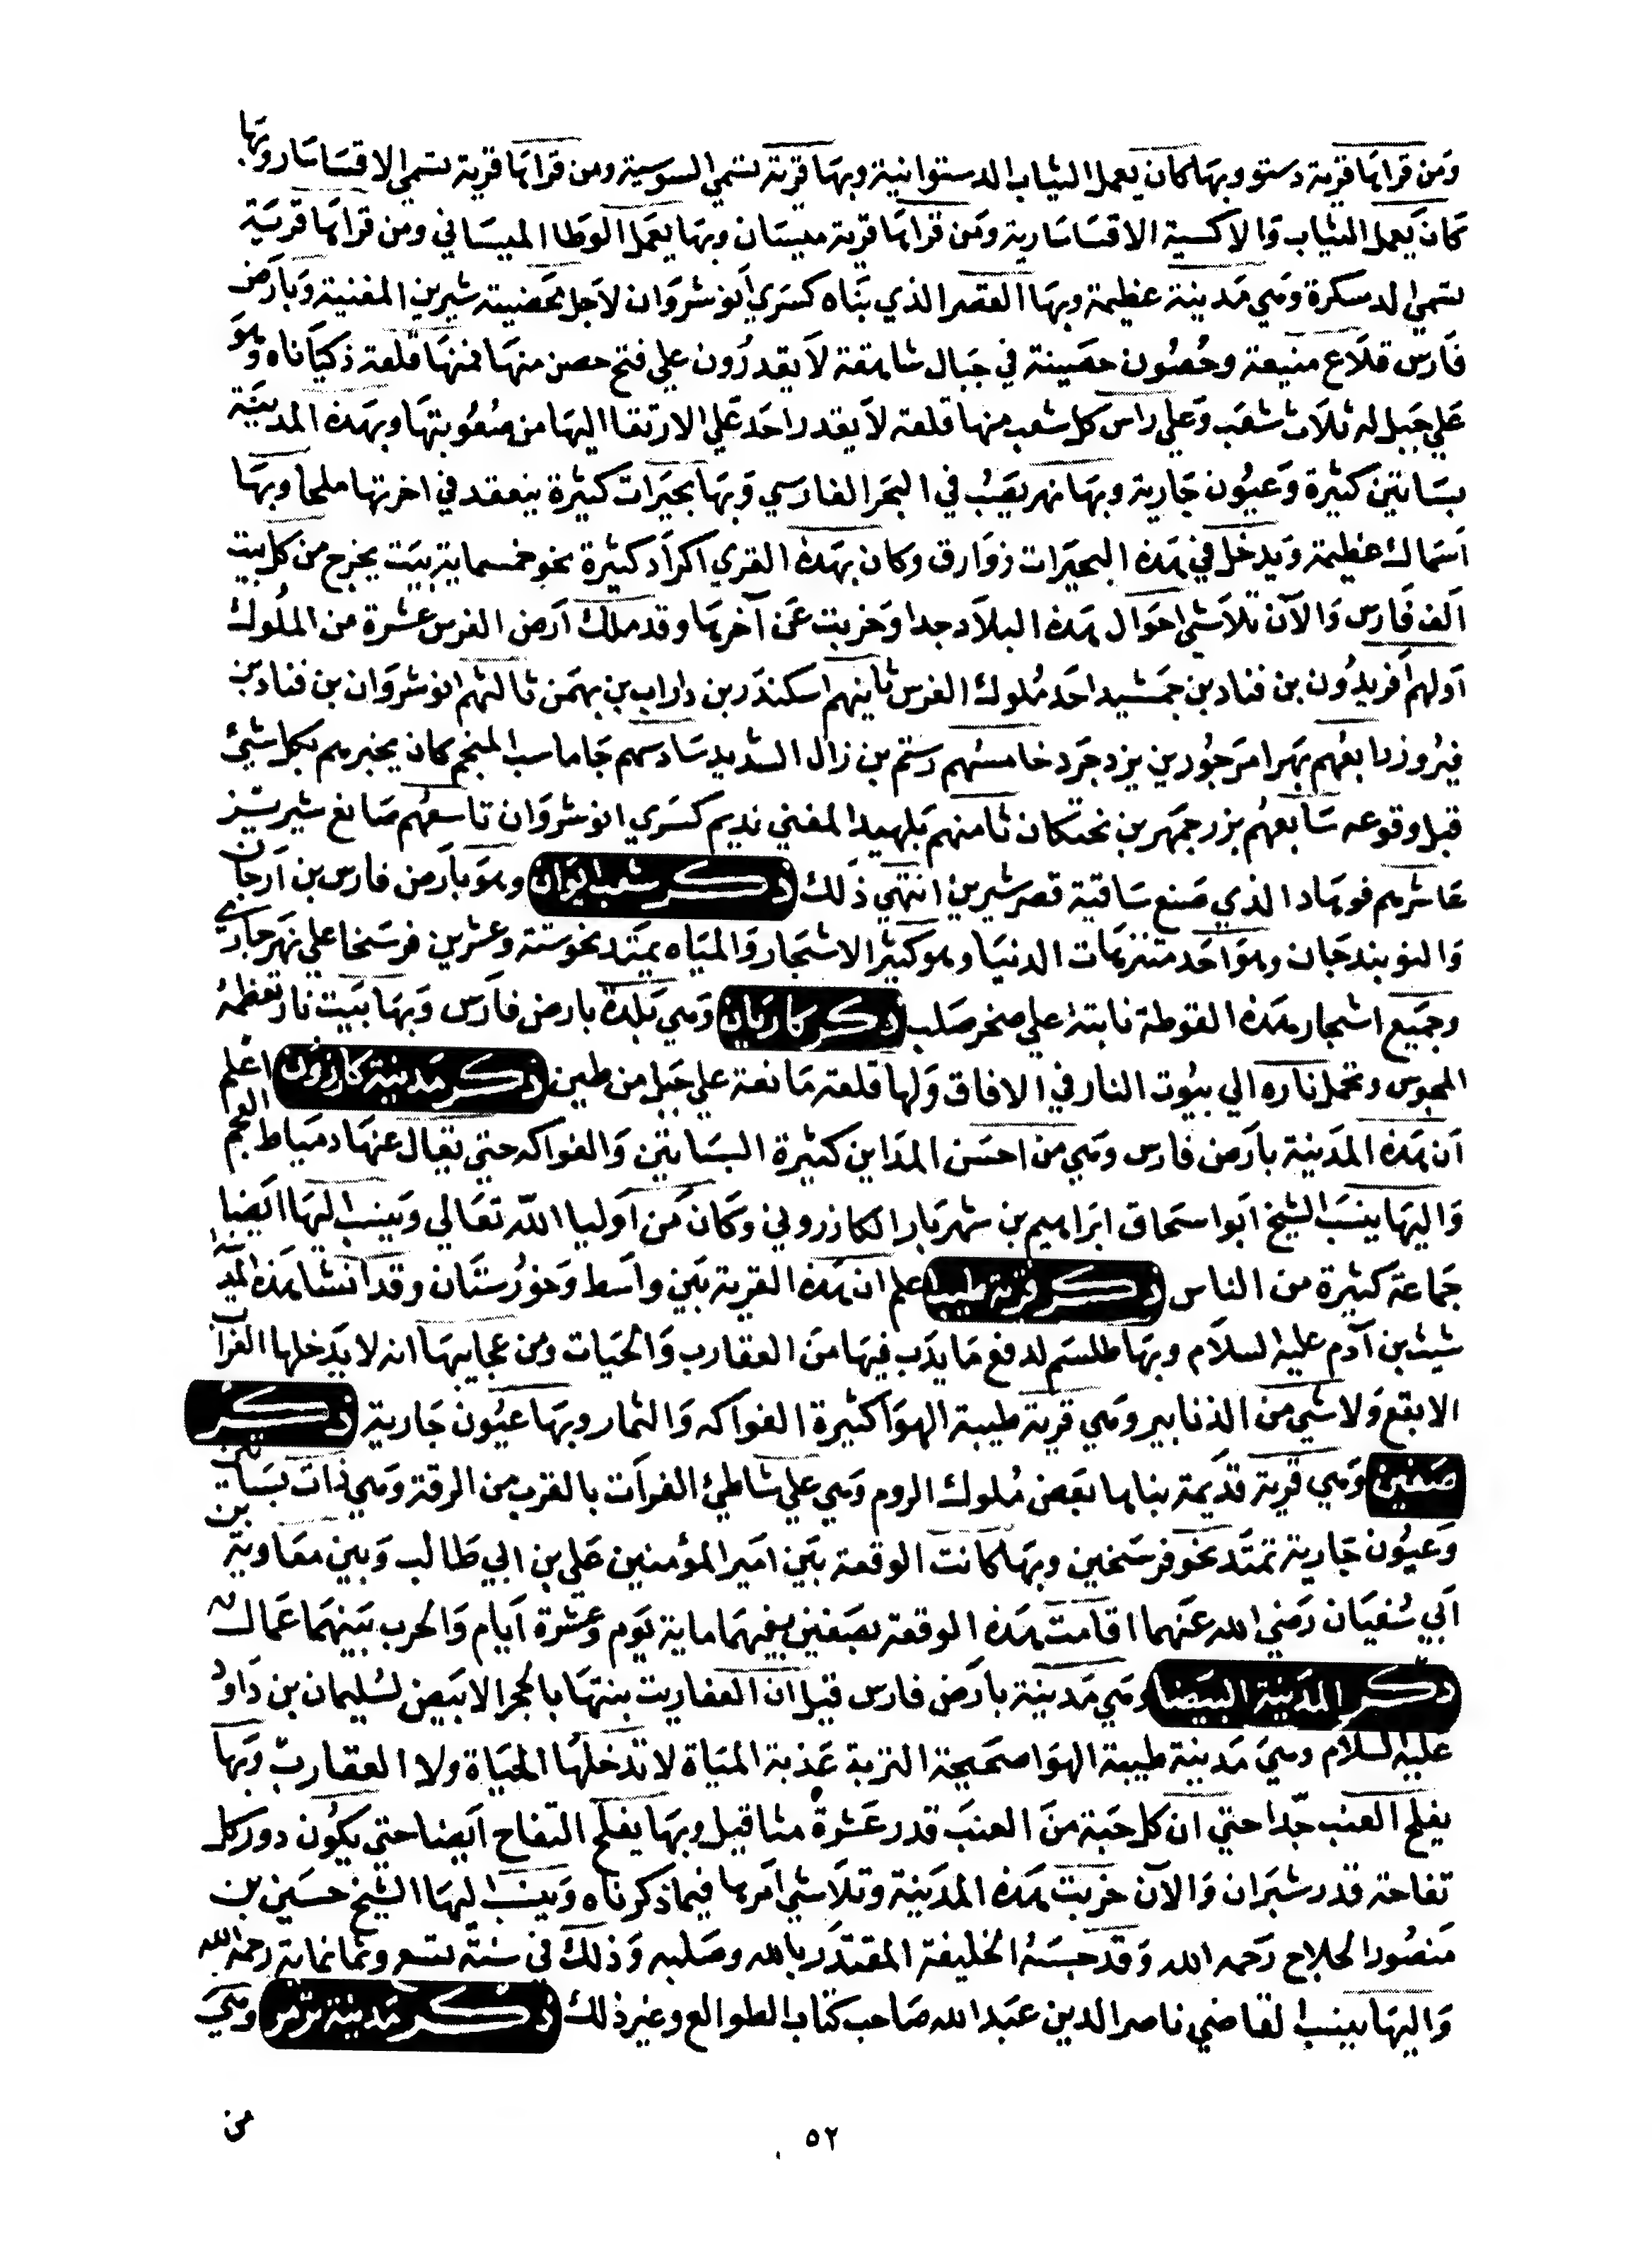 ومن قراها قرية دستو وبها كان يعمل الثياب الدستوانية وبها قرية تسمي السوسية ومن قراها قرية تسمي الاقساسار وبها
كان يعمل الثياب والاكسية الاقساسارية ومن قراها قرية ميسان وبها يعمل الوطا الميساني ومن قراها قرية
تسمي الدسكرة وهي مدينة عظيمة وبها القصر الذي بناه كسري انوشروان لاجل محضيته شيرين المغنية وبارض
فارس قلاع منيعة وحصون حصينة في جبال شاهقة لا يقدرون علي فتح حصن منها فمنها قلعة ذكياناه وهو
علي جبل له ثلاث شعب وعلي راس كل شعب منها قلعة لا يقدر احد علي الارتقا اليها من صعوبتها وبهذه المدينة
بساتين كثيرة وعيون جارية وبها نهر يصب في البحر الفارسي وبها بحيرات كثيرة ينعقد في اخرتها ملحا وبها
اسماك عظيمة ويدخل في هذه البحيرات زوارق وكان بهذه القري اكراد كثيرة نحو خمسماية بيت يخرج من كل بيت
الف فارس والآن تلاشي احوال هذه البلاد جدا وخربت عن آخرها وقد ملك ارض الفرس عشرة من الملوك
اولهم افريدون بن قناد بن جمشيد احد ملوك الفرس ثانيهم اسكندر بن داراب بن بهمن ثالثهم انوشروان بن قناد بن
فيروز رابعهم بهرام جور بن يزدجرد خامسهم رستم بن زال الشديد سادسهم جاماسب المنجم كان يخبرهم بكل شيئ
قبل وقوعه سابعهم بزرجمهر بن نحتكان ثامنهم بلهبد المغني نديم كسري انوشروان تاسعهم صانغ شيرشيز
عاشرهم فوهاد الذي صنع ساقية قصر شيرين انتهي ذلك ذكر شعب بوان وهو بارض فارس بن ارجان
والنوبندجان وهو احد متنزهات الدنيا وهو كثير الاشجار والمياه يمتد نحو ستة وعشرين فرسخا علي نهر جاري
وجميع اشجار هذه الغوطة نابتة علي صخر صلب ذكر كاريان وهي بلدة بارض فارس وبها بيت نار تعظمه
المجوس وتحمل ناره الي بيوت النار في الافاق ولها قلعة مانعة علي جبل من طين ذكر مدينة كازرون اعلم
ان هذه المدينة بارض فارس وهي من احسن المداين كثيرة البساتين والفواكه حتي يقال عنها دمياط العجم
واليها ينسب الشيخ ابو اسحاق ابراهيم بن شهريار الكازروني وكان من اوليا الله تعالي وينسب اليها ايضا
جماعة كثيرة من الناس ذكر قرية طيب اعلم ان هذه القرية بين واسط وخوزستان وقد انشا هذه المدينة
شيث بن آدم عليه السلام وبها طلسم لدفع ما يدب فيها من العقارب والحيات ومن عجايبها انه لا يدخلها الغراب
الابقع ولا شي من الذنابير وهي قرية طيبة الهوا كثيرة الفواكه والثمار وبها عيون جارية ذكر
صفين وهي قرية قديمة بناها بعض ملوك الروم وهي علي شاطئ الفرات بالقرب من الرقة وهي ذات بساتين
وعيون جارية تمتد نحو فرسخين وبها كانت الوقعة بين امير المؤمنين علي بن ابي طالب وبين معاوية بن
ابي سفيان رضي الله عنهما اقامت هذه الوقعة بصفين بينهما ماية يوم وعشرة ايام والحرب بينهما عمال
ذكر المدينة البيضا وهي مدينة بارض فارس قيل ان العفاريت بنتها بالحجر الابيض لسليمان بن داود
عليه السلام وهي مدينة طيبة الهوا صحيحة التربة عذبة المياة لا تدخلها الحياة ولا العقارب وبها
يفلح العنب جدا حتي ان كل حبة من العنب قدر عشرة مثاقيل وبها يفلح التفاح ايضا حتي يكون دور كل
تفاحة قدر شبران والآن خربت هذه المدينة وتلاشي امرها فيما ذكرناه وينسب اليها الشيخ حسين بن
منصور الحلاج رحمه الله وقد حبسه الخليفة المقتدر بالله وصلبه وذلك في سنة تسع وثمانماية رحمه الله
واليها ينسب القاضي ناصر الدين عبد الله صاحب كتاب الطوالع وغير ذلك ذكر مدينة وهي
من
٥٢